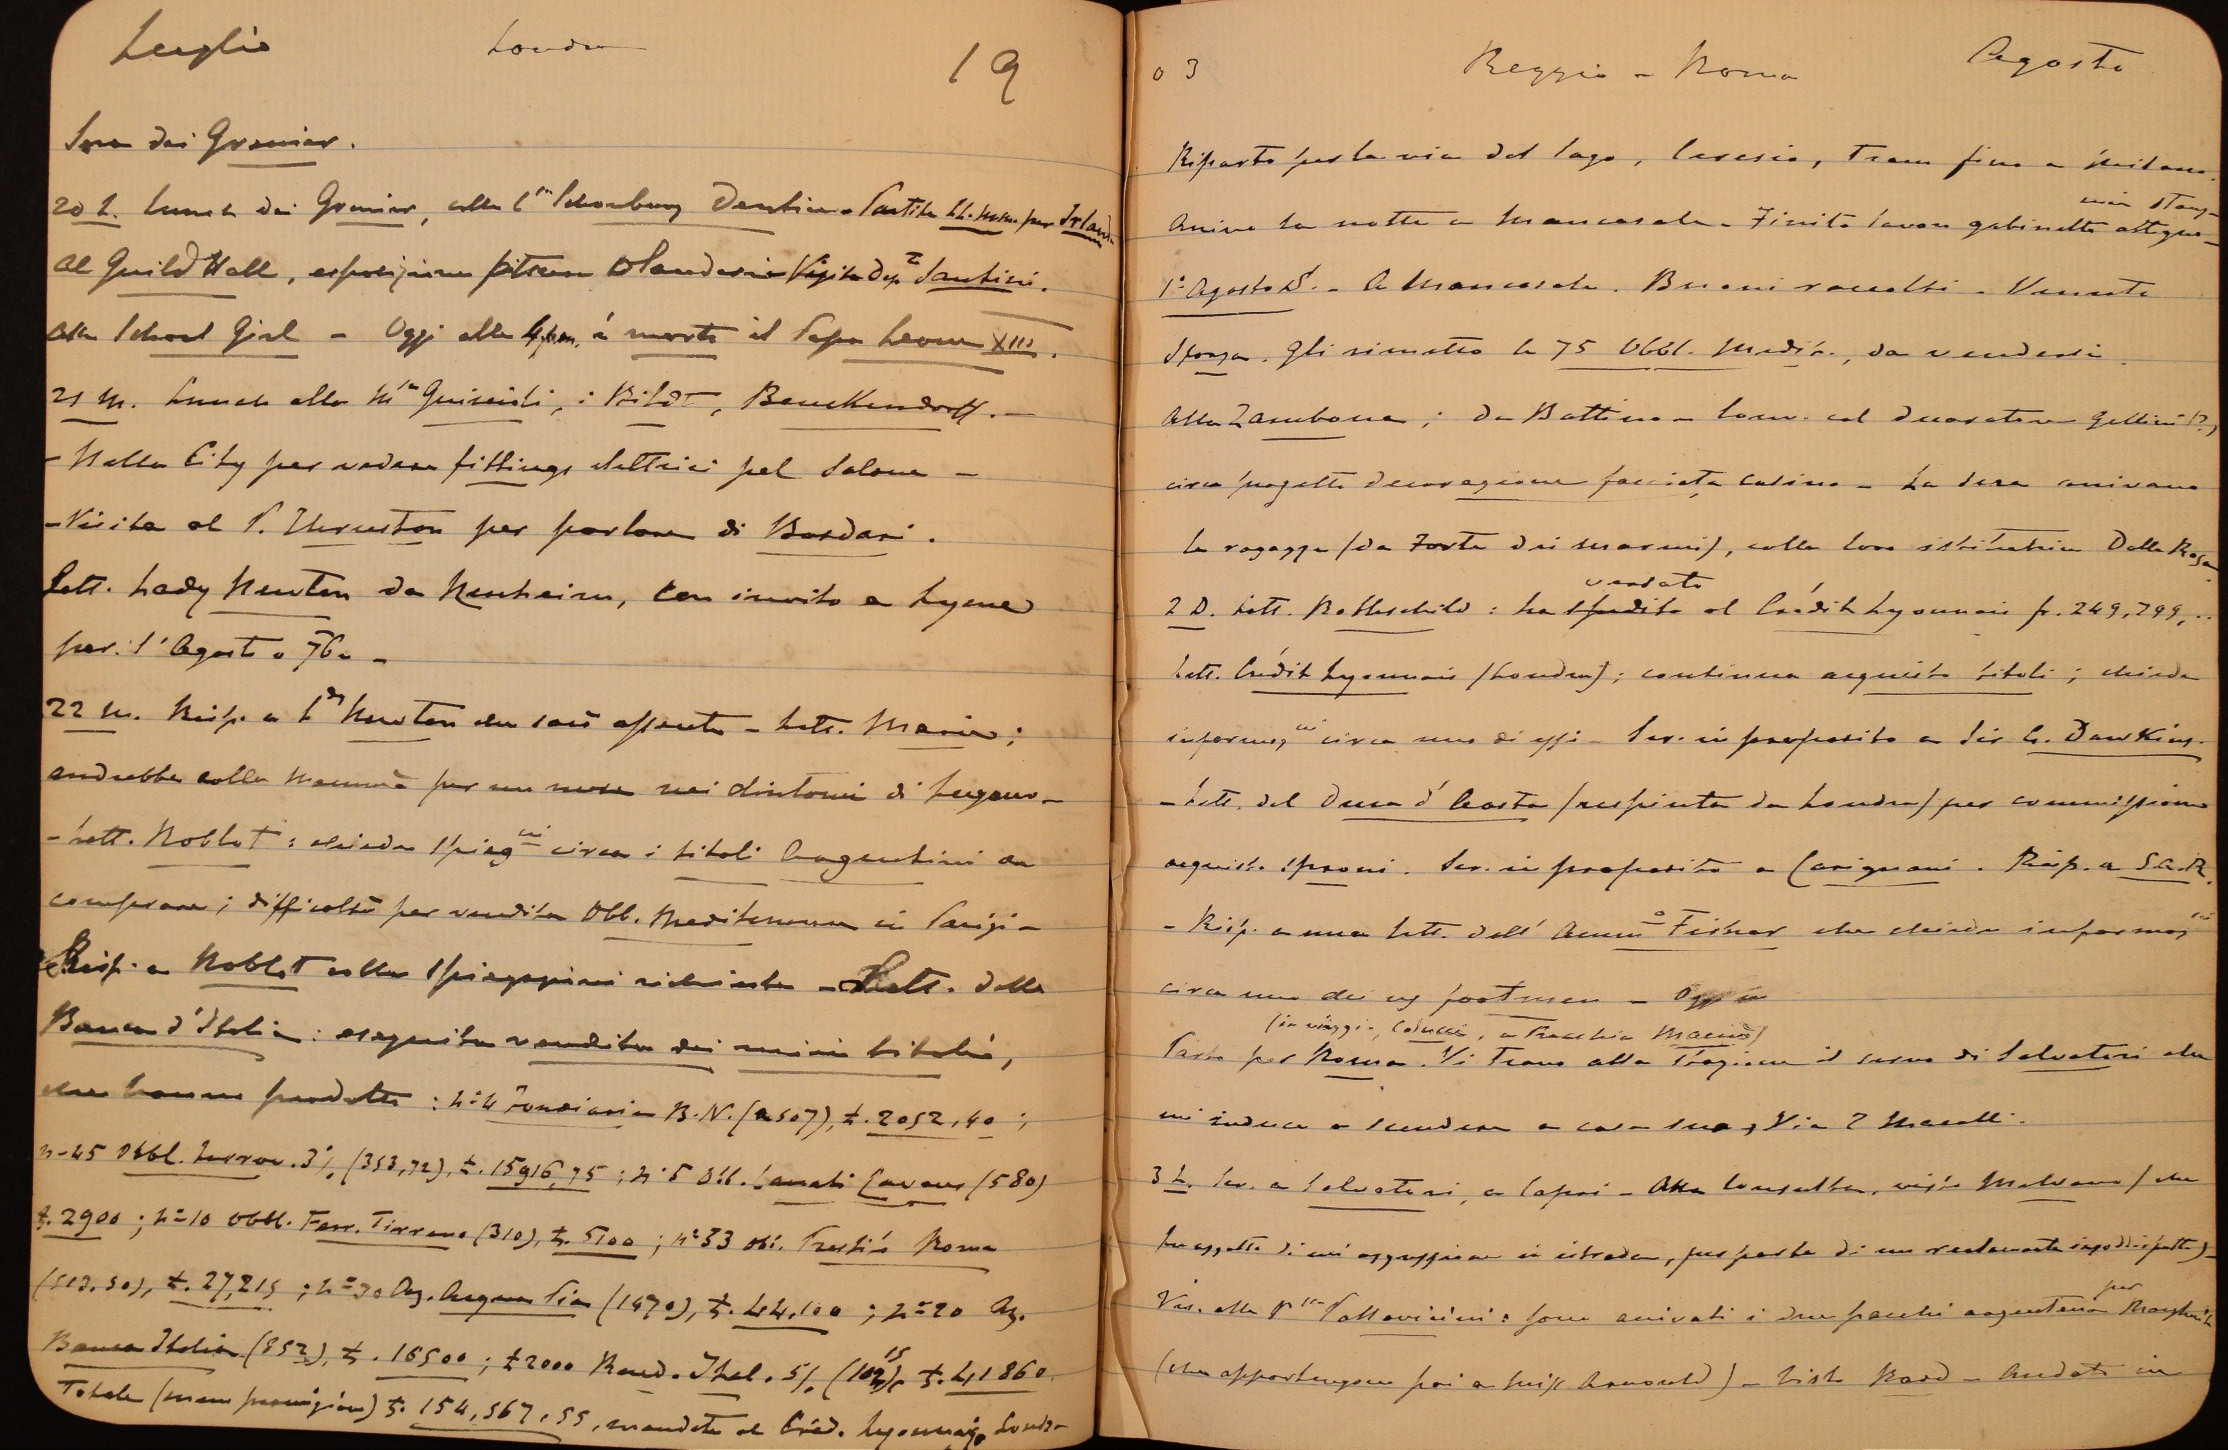 Luglio Londra 19
Sera dai Grenier.
20 L. Lunch dai Grenier, colla Dentice - Partite LL. MM. per Irlanda
Al Guild Hall, esposizione pittura Olandese. Visita Santini.
Alla School Girl - Oggi alle 4 pm. è morto il Papa Leone XIII.
21 M. Lunch alla i Bildt, Benckendorff. -
- Nella City per vedere fittings elettrici pel Salone -
- Visita al P. Thurston per parlare di Bosdari.
Lett. Lady Newton da con invito a Lyme
per l'Agosto o 7bre -
22 M. Risp. a Ldy Newton che sarò assente - Lett. Maria;
andrebbe colla Mammà per un mese nei dintorni di Lugano -
- Lett. Noblet: chiede spiegni circa i titoli Argentini da
comprare; difficoltà per vendita Obb. Mediterranee in Parigi -
Risp. a Noblet colle spiegazioni richieste - Lett. della
Banca d'Italia: eseguita vendita dei miei titoli,
che hanno prodotto: n° 4 Fondiaria B.N. (a 507), £. 2052,40;
n° 45 Obbl. Ferrov. 3% (353,72), £. 15916,75; n° 5 Obl. Canali Cavour (580)
£. 2900; n° 10 Obbl. Ferr. Tirreno (310), £. 5100; n° 33 Obl. Prestito Roma
(513.50), £. 27,215; n° 30 Az. Acqua Pia (1470), £. 44,100; n° 20 Az.
Banca Italia (852), £. 16500; £ 2000 Rend. Ital. 5% £. 41860.
Totale (meno provvigione) £. 154,567,55, mandato al Créd. Lyonnais, Londra
03 Reggio - Roma Agosto
Riparto per la via del lago, Ceresio, Tram fino a Milano.
mia stanza
Arrivo la notte a Mancasale - Finito lavoro gabinetto attiguo -
1° Agosto S. - A Mancasale. Buoni raccolti - Venuto
Sforza. Gli rimetto le 75 Obbl. Medit., da vendersi.
Alla Zambona; da Battino - Conv. col decoratore
circa progetto decorazione facciata Casino - La sera arrivano
le ragazze (da Forte dei Marmi), colla loro istitutrice Dalla Rosa.
versato
2 D. Lett. Rothschild: ha spedito al Crédit Lyonnais fr. 249,799,..
Lett. Crédit Lyonnais (Londra); continua acquisto titoli; chiede
informazni circa uno di essi - Scr. in proposito a Sir C. Dawkins.
- Lett. del Duca d'Aosta (respinta da Londra) per commissione
acquisto sproni. Scr. in proposito a Carignani. Risp. a S.A.R.
- Risp. a una lett. dell' Ammo Fisher che chiede informazni
circa uno dei footmen - Oggi
(in viaggio, a Pracchia Macciò)
Parto per Roma. Vi trovo alla stazione il servo di Salvatori che
mi induce a scendere a casa sua, Via 2 Macelli.
3 L. Scr. a Salvatori, a Capri - Alla Consulta, visto Malvano (che
fu oggetto di un' aggressione in istrada, per parte di un reclamante insoddisfatto) -
per
Vis. alla Pssa Pallavicini: sono arrivati i due pacchi argenteria Margherita
(che appartengono poi a Miss ) - Visto - Andato in